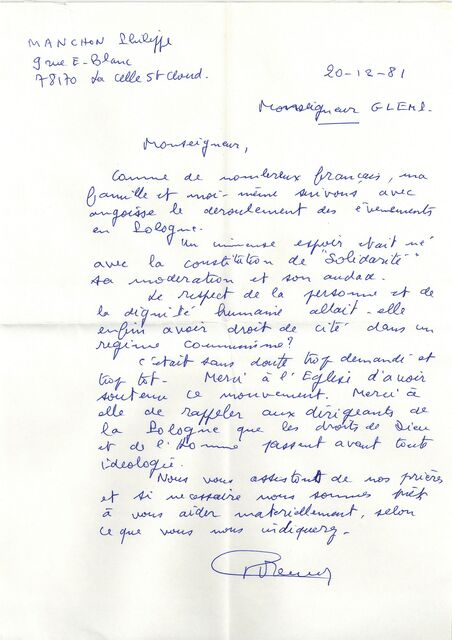 MANCHON Philippe
9 rue E-Blanc
78170 La Celle St Cloud.
20-12-81
Monseigneur GLEMP.
Monseigneur,
Comme de nombreux français, ma
famille et moi-même suivons avec
angoisse le deroulement des évènements
en Pologne.
Un immense espoir était né
avec la constitution de "Solidarité"
sa moderation et son audace.
Le respect de la personne et de
la dignité humaine allait-elle
enfin avoir droit de cité dans un
regime communisme?
c'était sans doute trop demandé et
trop tot. Merci à l'Eglise d'avoir
soutenu ce mouvement. Merci à
elle de rappeler aux dirigeants de
la Pologne que les droits de Dieu
et de l'Homme passent avant toute
ideologie.
Nous vous assistons de nos prières
et si necessaire nous sommes prêt
à vous aider materiellement, selon
ce que vous nous indiquerez.